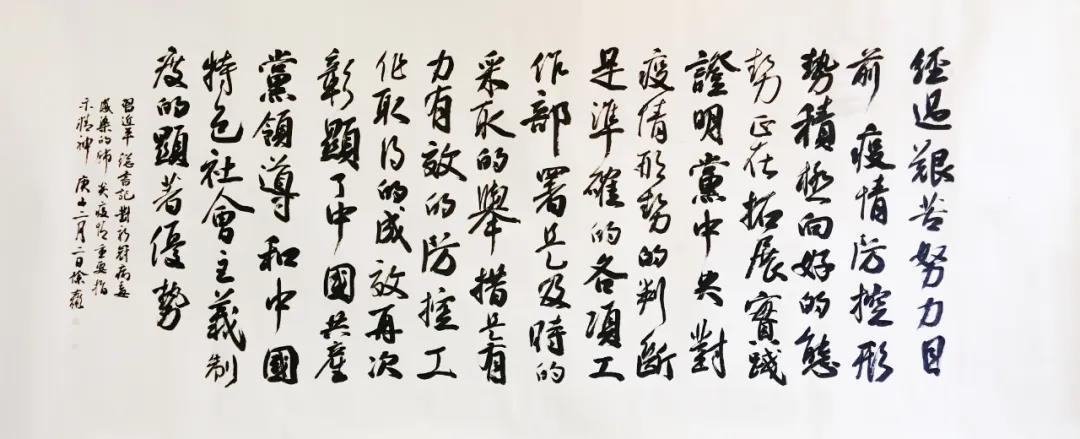 經過艱苦努力目
前疫情防控形
勢積極向好的態
勢正在拓展實踐
證明黨中央對
疫情形勢的判斷
是準確的各項工
作部署是及時的
采取的舉措是有
力有效的防控工
作取得的成效再次
彰顯了中國共產
黨領導和中國
特色社會主義制
度的顯著優勢
習近平總書記對新冠病毒
感染的肺炎疫情重要指
示精神 庚子二月二日徐